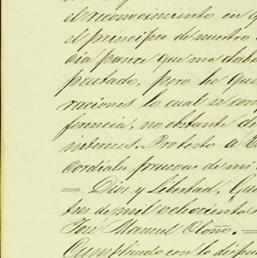 el reconocimiento en q
el principio de nuestro
cia parece que me daba
pactado, pero la Que
raciones lo cual se con
ferencia, no obstante de
intereses. Protesto a V
cordiales pruevas de mi
= Dios y Libertad, Gua
tas de mil ochocientos
José Manuel Oloño. =
Cumpliendo con lo dispu